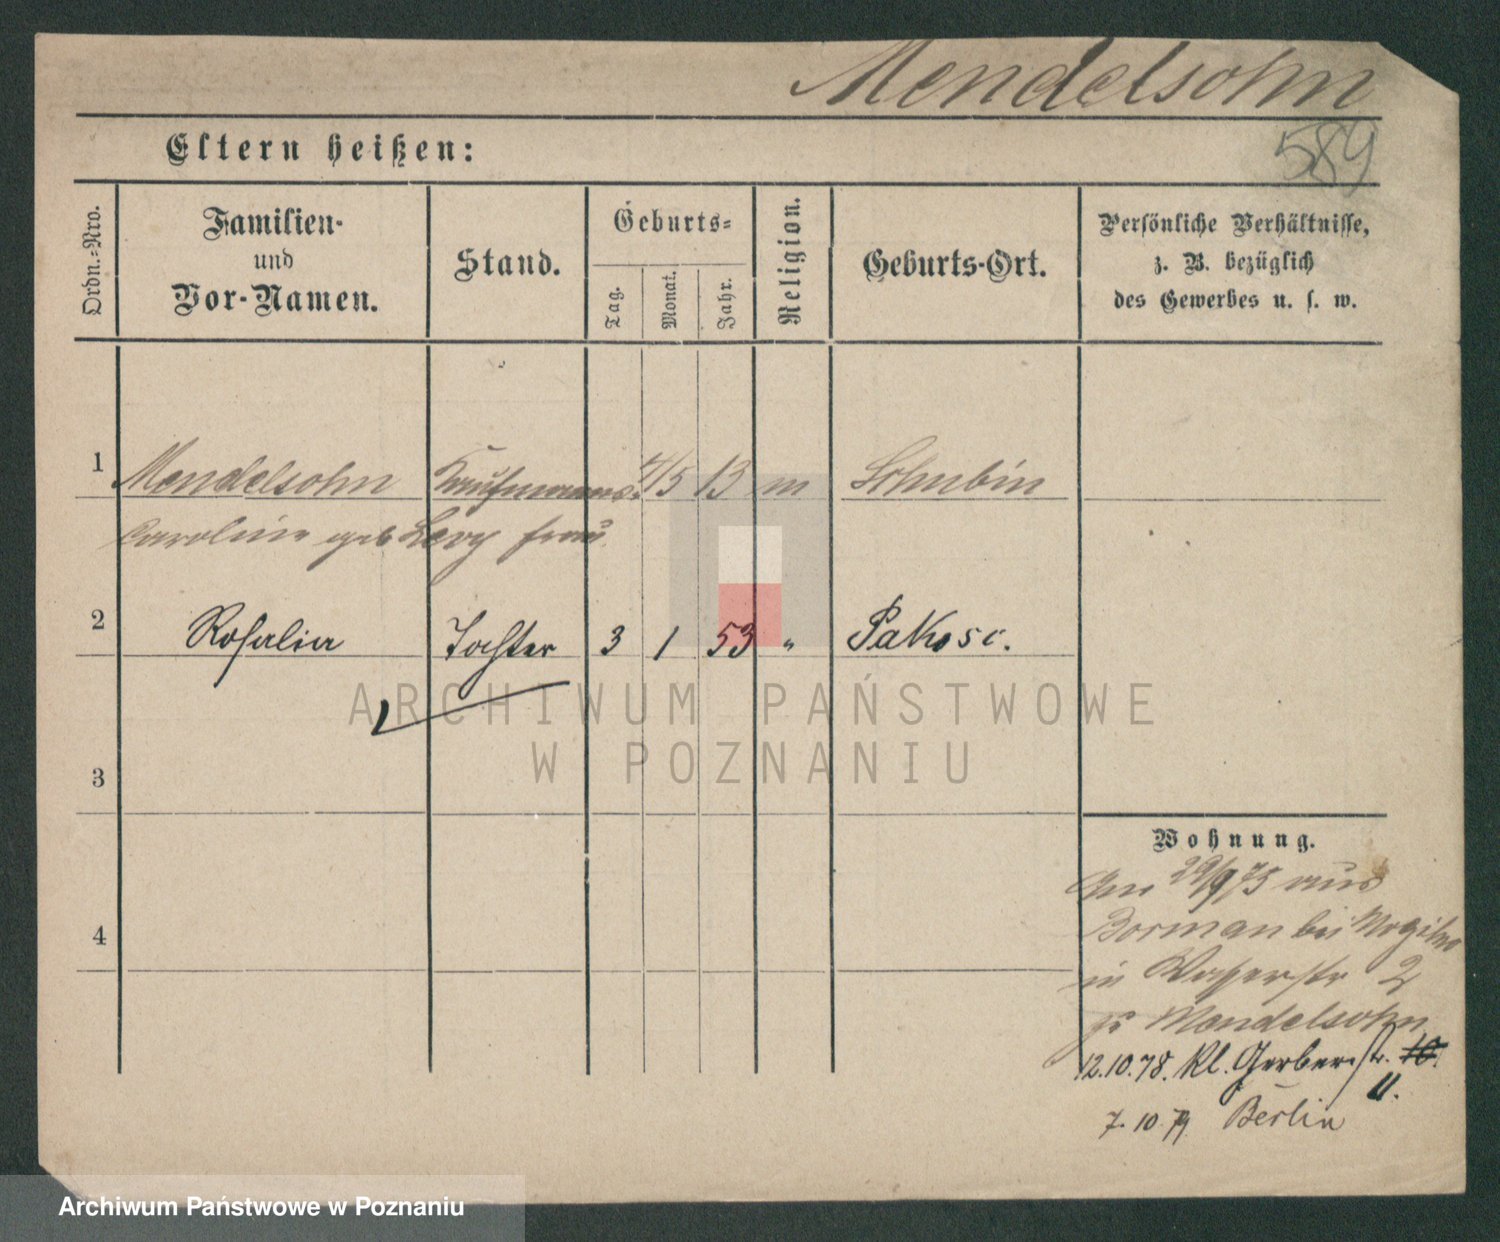 Mendelsohn
589
Eltern heißen:
Ordn.-Nro.
Familien-
und
Vor-Namen.
Stand.
Geburts-
Tag.
Monat.
Jahr.
Religion.
Geburts-Ort.
Persönliche Verhältnisse,
z. B. bezüglich
des Gewerbes u. s. w.
1 Mendelsohn Kaufmanns 4/5 13 m Schubin
Caroline geb Levy frau
2 Rosalia Tochter 3 1 53 " Pakosc.
3
4
Wohnung.
29/9 75 aus
bei Mogilno
in Wasserstr 2
zu Mendelsohn
12.10.78. Kl. Gerberstr. 10.
11.
7.10.79 Berlin
ARCHIWUM PAŃSTWOWE
W POZNANIU
Archiwum Państwowe w Poznaniu